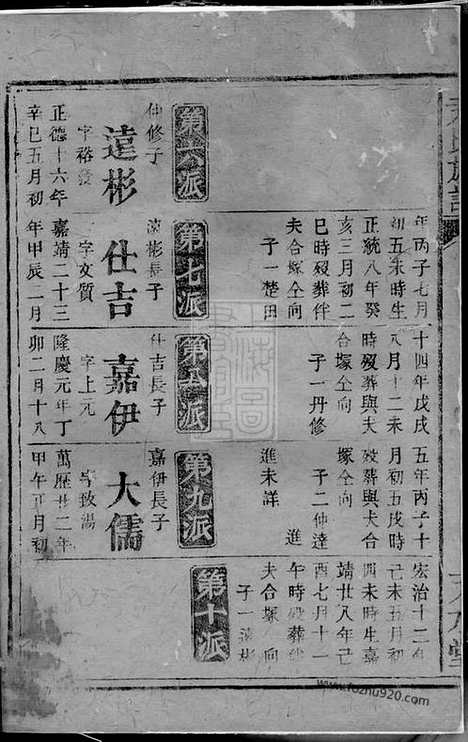 年丙子七月
初五未時生
正統八年癸
亥三月初二
巳時歿葬伴
夫合塚仝向
子一楚田
十四年戊戌
八月十二未
時歿葬與夫
合塚仝向
子一丹修
五年丙子十
月初五戌時
歿葬與夫合
塚仝向
子二仲達
進
進未詳
宏治十二年
己未五月初
四未時生嘉
靖廿八年己
酉七月十一
午時歿葬
夫合塚仝向
子一遠彬
第六派
仲修子
遠彬
字裕發
正德十六年
辛巳五月初
第七派
遠彬長子
仕吉
字文質
嘉靖二十三
年甲辰一月
第八派
仕吉長子
嘉伊
字上元
隆慶元年丁
卯二月十八
第九派
嘉伊長子
大儒
字致湯
萬歷廿二年
甲午正月初
第十派